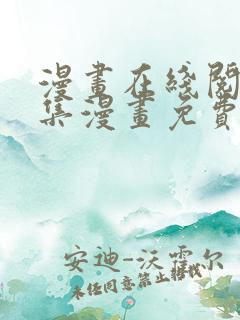 漫畫在綫閱
集漫畫免費
安迪--沃霍尔
未经同意禁止转载